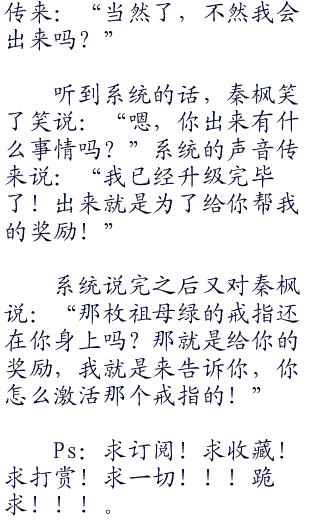 传来：“当然了，不然我会
出来吗？”
听到系统的话，秦枫笑
了笑说：“嗯，你出来有什
么事情吗？”系统的声音传
来说：“我已经升级完毕
了！出来就是为了给你帮我
的奖励！”
系统说完之后又对秦枫
说：“那枚祖母绿的戒指还
在你身上吗？那就是给你的
奖励，我就是来告诉你，你
怎么激活那个戒指的！”
Ps：求订阅！求收藏！
求打赏！求一切！！！跪
求！！！。